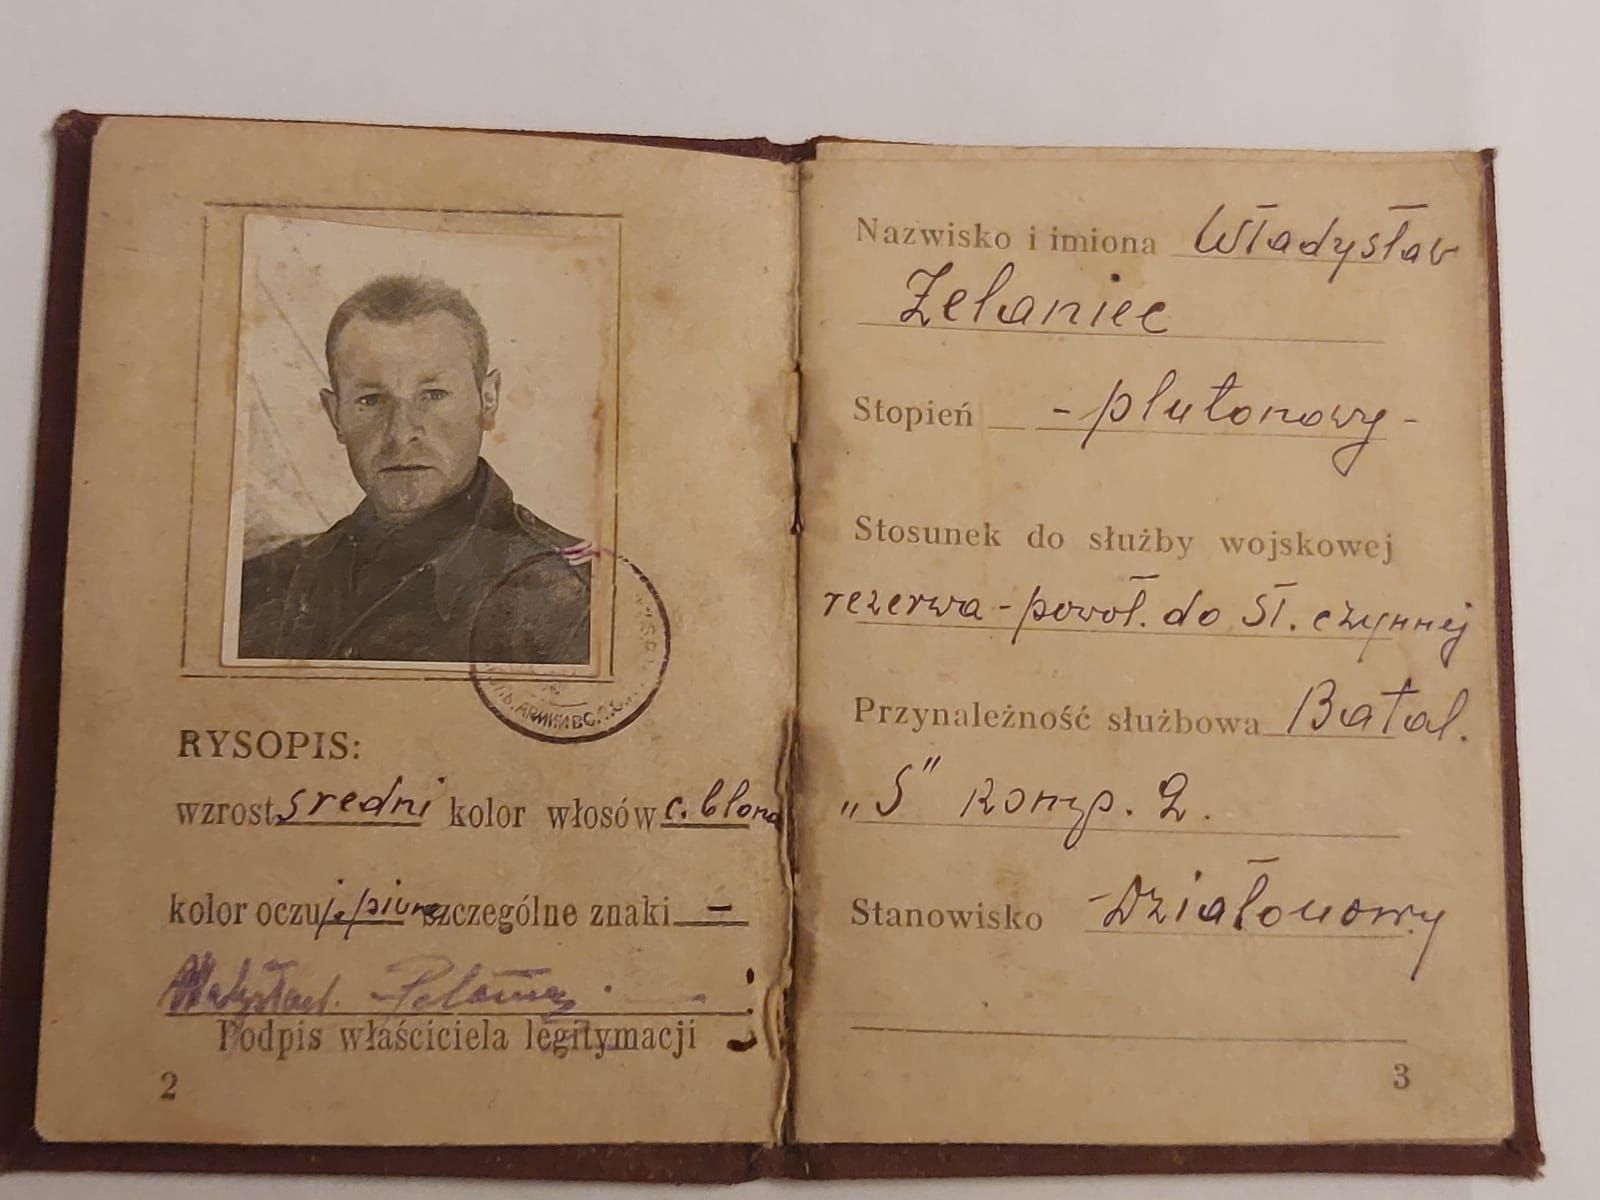 RYSOPIS:
wzrost średni kolor włosów c. blond
kolor oczu j. piwne szczególne znaki –
Władysław
Podpis właściciela legitymacji
2
Nazwisko i imiona Władysław
Żelaniec
Stopień – plutonowy –
Stosunek do służby wojskowej
rezerwa – powoł. do sł. czynnej
Przynależność służbowa Batal.
„S” komp. 2.
Stanowisko – Działonowy
3